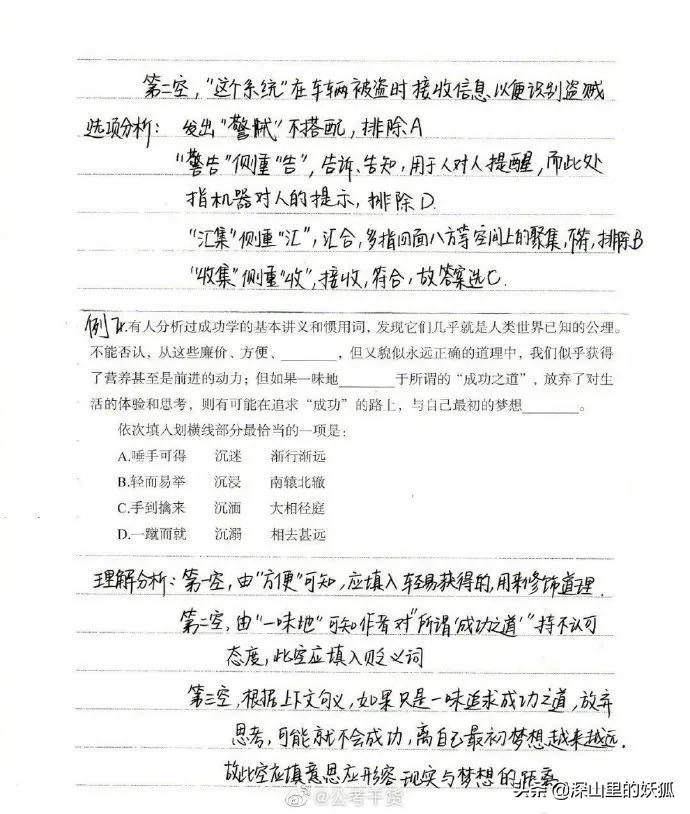 第二空，“这个系统”在车辆被盗时接收信息以便识别盗贼
选项分析：发出“警惕”不搭配，排除A
“警告”侧重“告”，告诉、告知，用于人对人提醒，而此处
指机器对人的提示，排除D.
“汇集”侧重“汇”，汇合，多指四面八方等空间上的聚集，不符，排除B
“收集”侧重“收”，接收，符合，故答案选C.
例 有人分析过成功学的基本讲义和惯用词，发现它们几乎就是人类世界已知的公理。
不能否认，从这些廉价、方便、________，但又貌似永远正确的道理中，我们似乎获得
了营养甚至是前进的动力；但如果一味地________于所谓的“成功之道”，放弃了对生
活的体验和思考，则有可能在追求“成功”的路上，与自己最初的梦想________。
依次填入划横线部分最恰当的一项是：
A.唾手可得 沉迷 渐行渐远
B.轻而易举 沉浸 南辕北辙
C.手到擒来 沉湎 大相径庭
D.一蹴而就 沉溺 相去甚远
理解分析：第一空，由“方便”可知，应填入轻易获得的，用来修饰道理.
第二空，由“一味地”可知作者对“所谓‘成功之道’”持不认可
态度，此空应填入贬义词
第三空，根据上下文句义，如果只是一味追求成功之道，放弃
思考，可能就不会成功，离自己最初梦想越来越远.
故此空应填意思应形容现实与梦想的距离
@公考干货
头条@深山里的妖狐